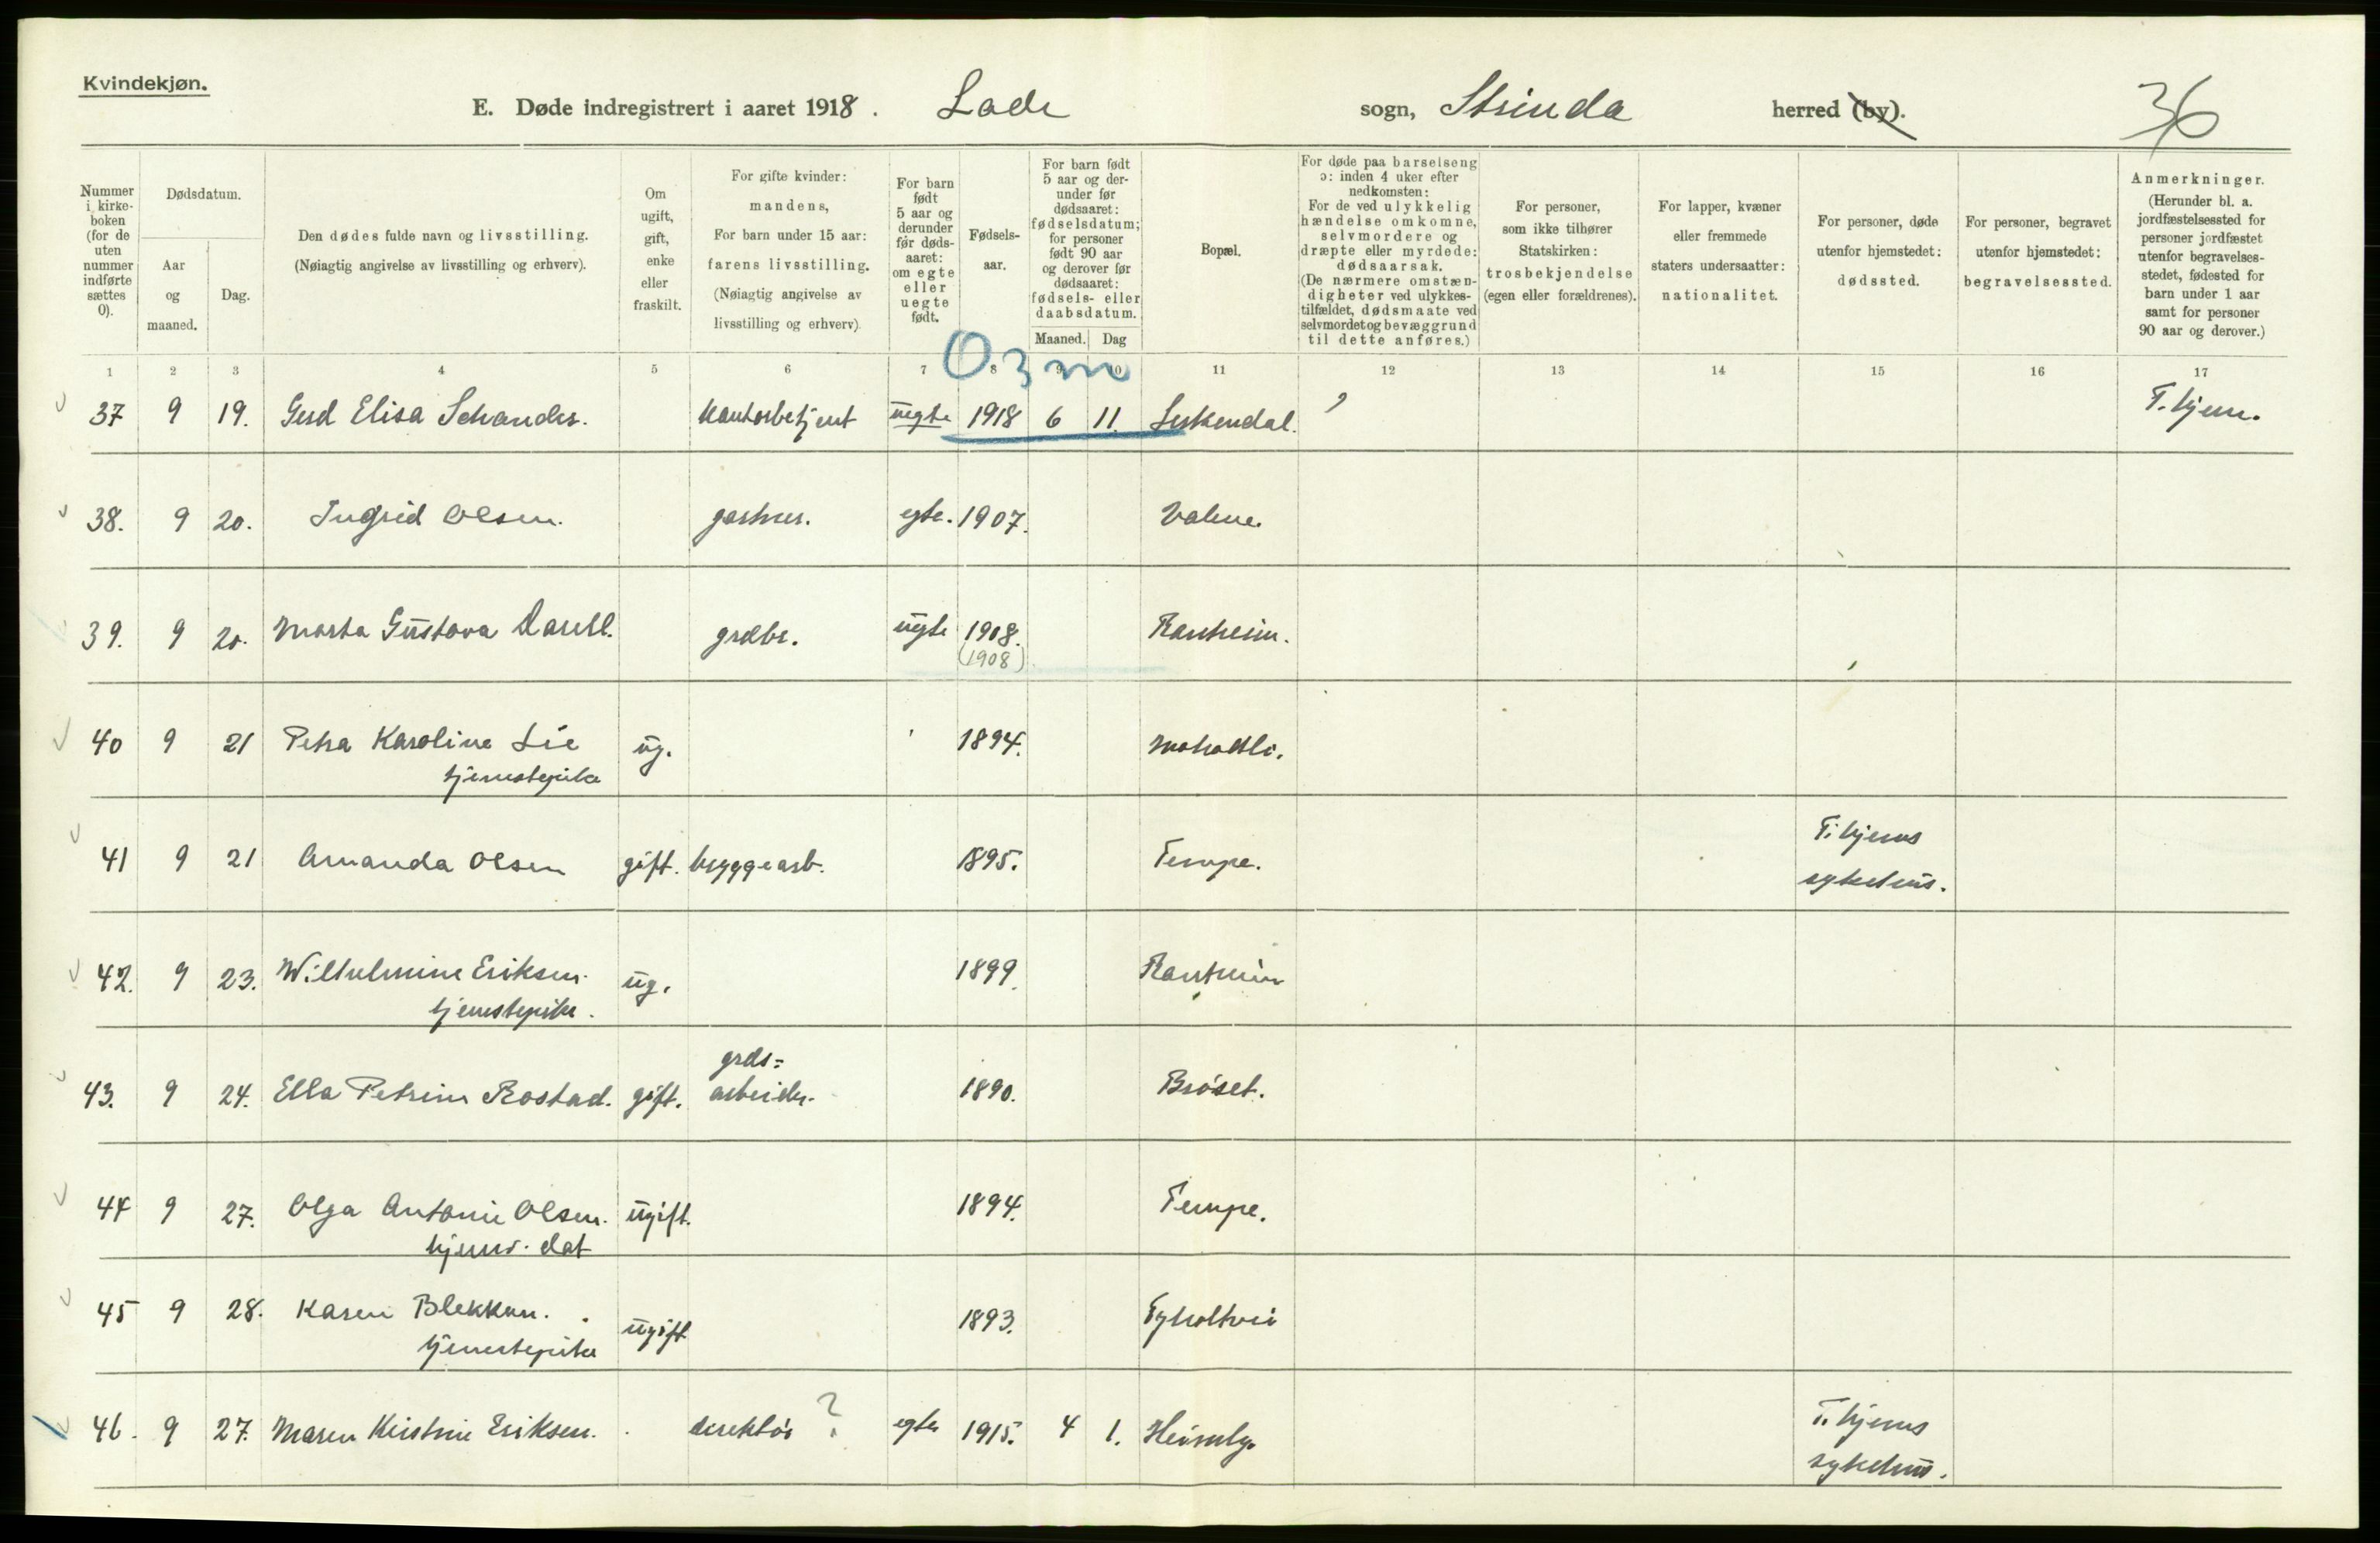 Kvindekjøn.
E. Døde indregistrert i aaret 1918. Lade sogn, Strinda herred (by).
36
Nummer i kirke-boken (for de uten nummer indførte sættes 0).
Dødsdatum.
Aar og maaned.
Dag.
Den dødes fulde navn og livsstilling.
(Nøiagtig angivelse av livsstilling og erhverv).
Om ugift, gift, enke eller fraskilt.
For gifte kvinder: mandens,
For barn under 15 aar: farens livsstilling.
(Nøiagtig angivelse av livsstilling og erhverv)
For barn født 5 aar og derunder før døds-aaret: om egte eller uegte født.
Fødsels-aar.
For barn født 5 aar og der-under før dødsaaret: fødselsdatum; for personer født 90 aar og derover før dødsaaret: fødsels- eller daabsdatum.
Maaned. Dag
Bopæl.
For døde paa barselseng ɔ: inden 4 uker efter nedkomsten:
For de ved ulykkelig hændelse omkomne, selvmordere og dræpte eller myrdede: dødsaarsak.
(De nærmere omstæn-digheter ved ulykkes-tilfældet, dødsmaate ved selvmordet og bevæggrund til dette anføres.)
For personer, som ikke tilhører Statskirken: trosbekjendelse (egen eller forældrenes).
For lapper, kvæner eller fremmede staters undersaatter: nationalitet.
For personer, døde utenfor hjemstedet: dødssted.
For personer, begravet utenfor hjemstedet: begravelsessted.
Anmerkninger.
(Herunder bl. a. jordfæstelsessted for personer jordfæstet utenfor begravelses-stedet, fødested for barn under 1 aar samt for personer 90 aar og derover.)
1 2 3 4 5 6 7 8 9 10 11 12 13 14 15 16 17
0 3 m
37 9 19. Gerd Elisa Schander. kontorbetjent uegte 1918 6 11. T.hjem.
38. 9 20. Ingrid Olsen. gartner. egte. 1907.
39. 9 20. Marta Gustava uegte 1908. Ranheim.
(1908)
40 9 21 Petra Karoline Lie ug. 1894.
tjenestepike
41 9 21 Amanda Olsen gift. bryggearb. 1895. Tempe. T.hjems
sykehus.
42. 9 23. Wilhelmine Eriksen. ug. 1899. Ranheim
tjenestepike.
43. 9 24. Ella Petrine Rostad. gift. grds=
arbeider. 1890. Brøset.
44 9 27. Olga Antonie Olsen. ugift. 1894. Tempe.
hjemv. dat
45 9 28. Karen Blekkan. ugift 1893. Tyholtvei
tjenestepike
46. 9 27. Maren Kirstine Eriksen. direktør ? egte 1915. 4 1. Heimly. T.hjems
sykehus.